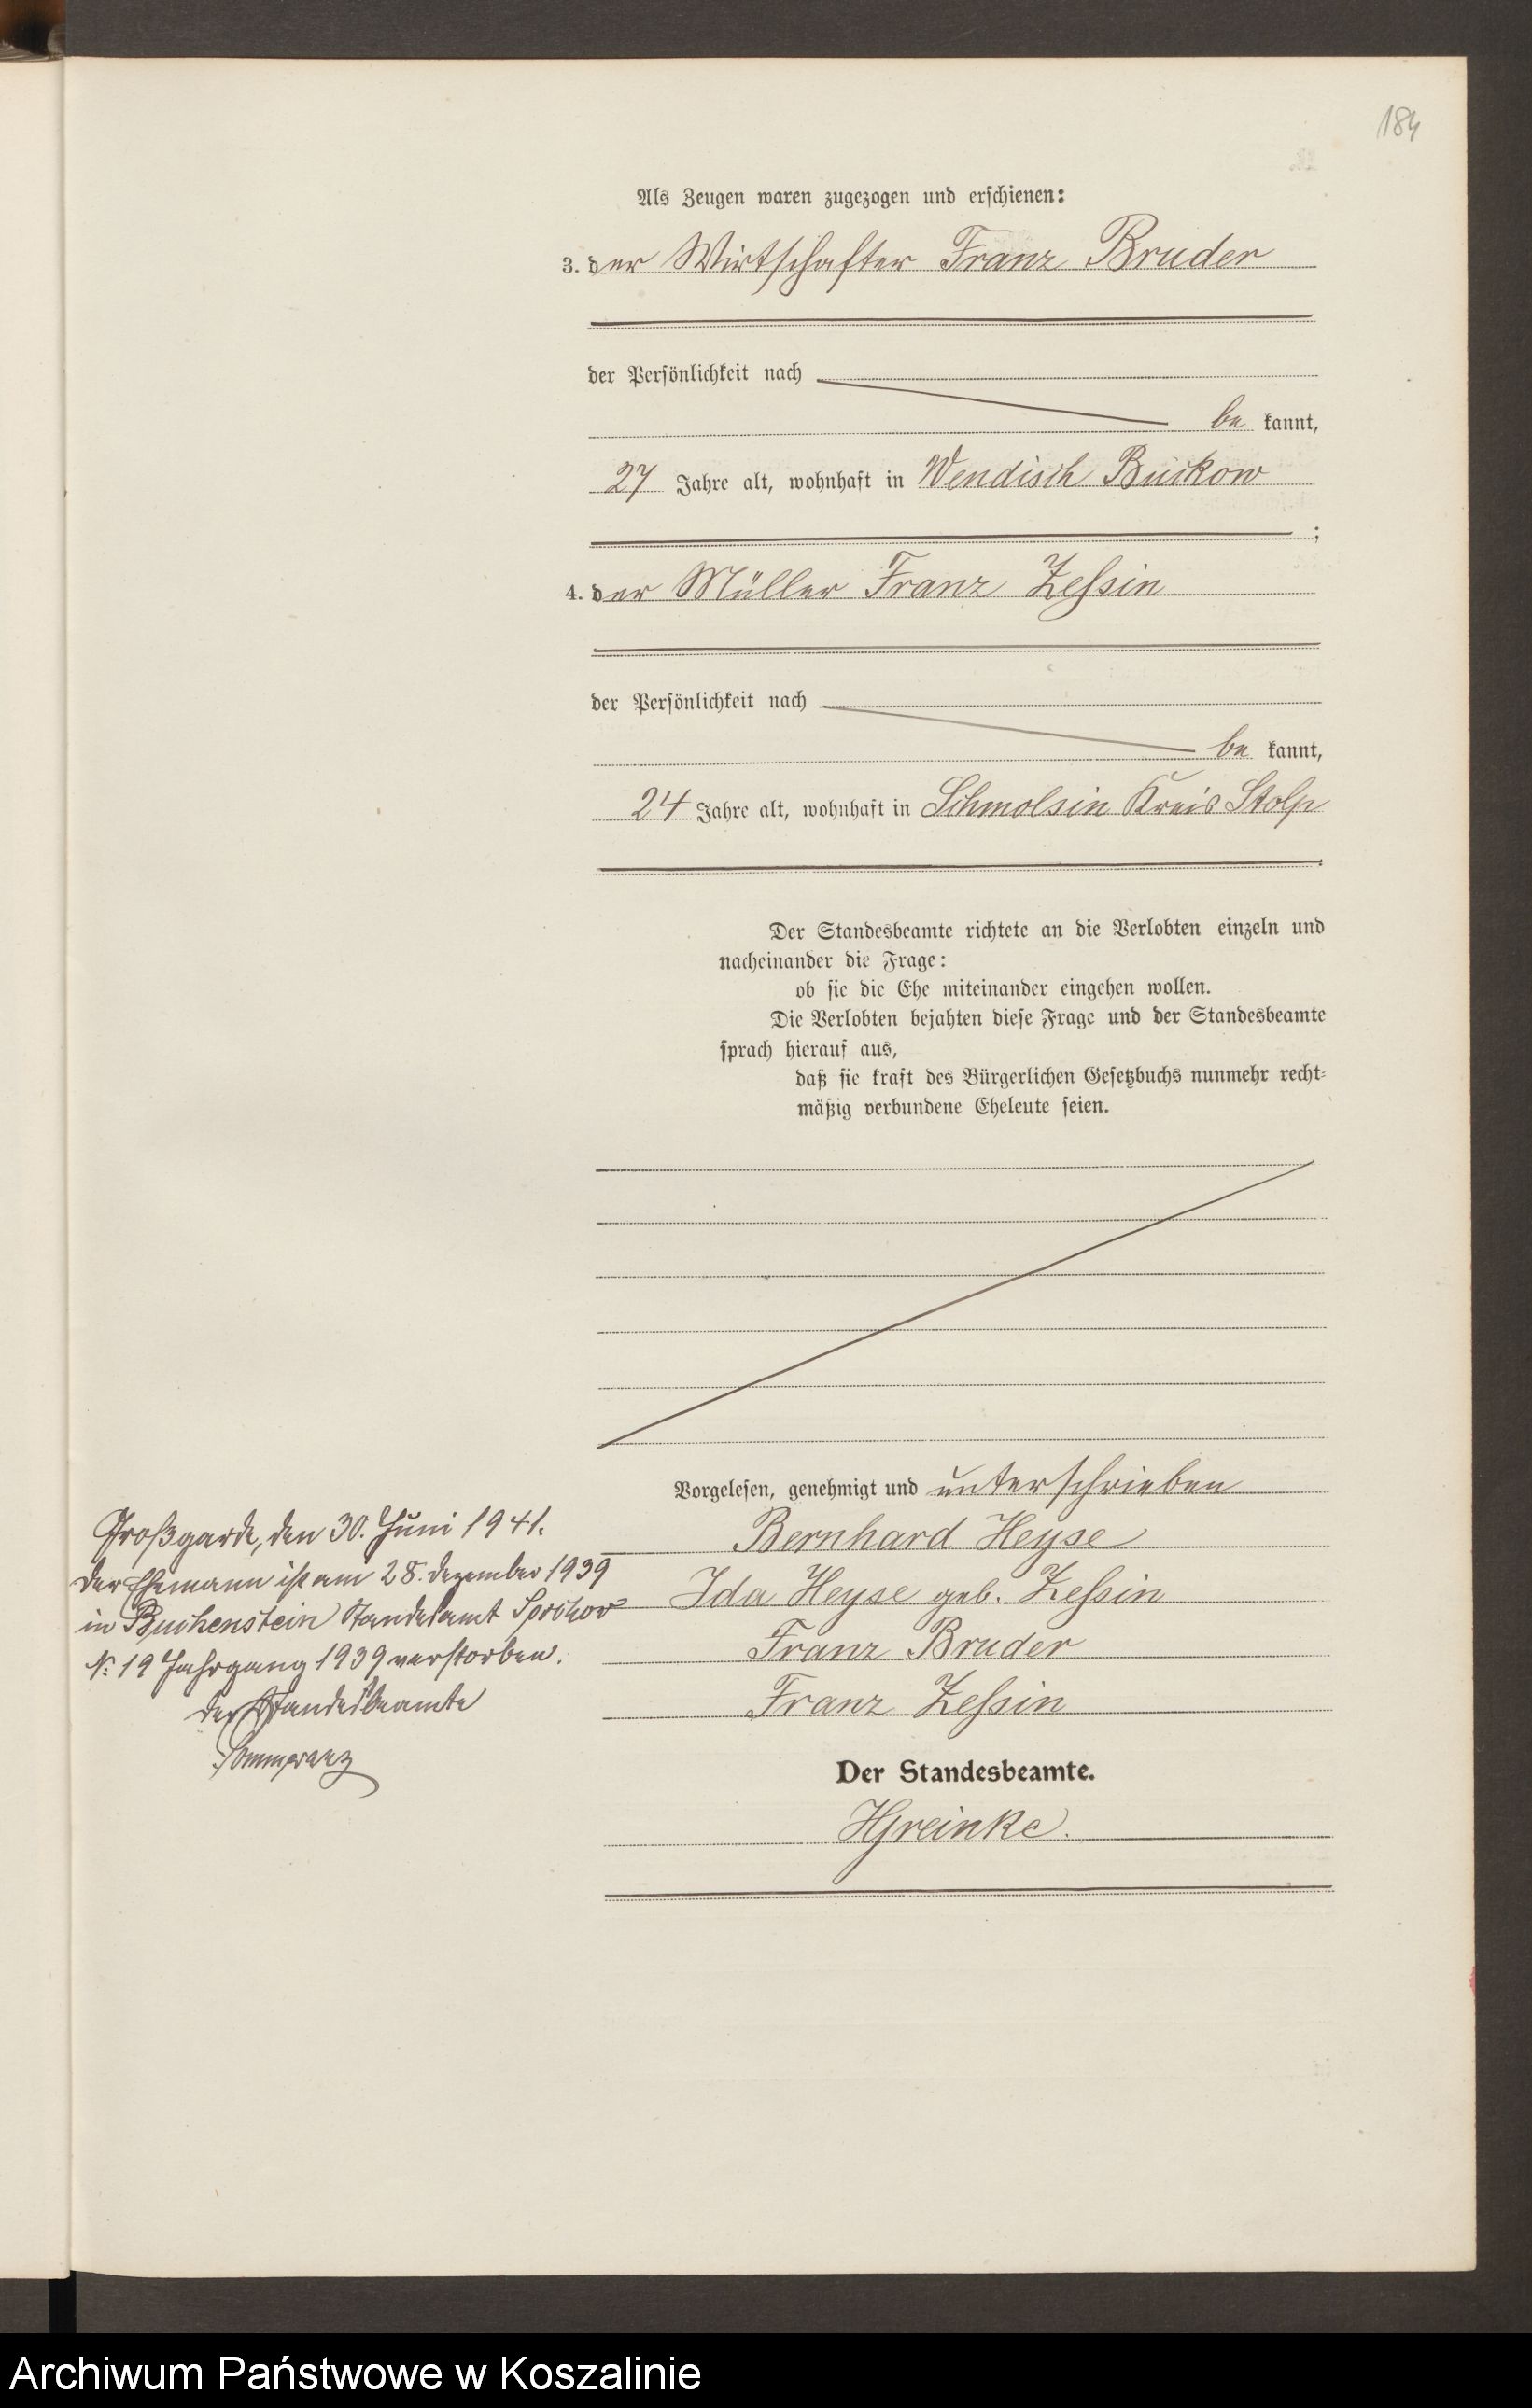 184
Als Zeugen waren zugezogen und erschienen:
3. der Wirtschafter Franz Bruder
der Persönlichkeit nach
be kannt,
27 Jahre alt, wohnhaft in Wendisch Buckow
;
4. der Müller Franz Zessin
der Persönlichkeit nach
be kannt,
24 Jahre alt, wohnhaft in Schmolsin Kreis Stolp
.
Der Standesbeamte richtete an die Verlobten einzeln und
nacheinander die Frage:
ob sie die Ehe miteinander eingehen wollen.
Die Verlobten bejahten diese Frage und der Standesbeamte
sprach hierauf aus,
daß sie kraft des Bürgerlichen Gesetzbuchs nunmehr recht-
mäßig verbundene Eheleute seien.
Vorgelesen, genehmigt und unterschrieben
Bernhard Heyse
Ida Heyse geb. Zessin
Franz Bruder
Franz Zessin
Der Standesbeamte.
HGreinke.
Großgarde, den 30. Juni 1941.
Der Ehemann ist am 28. Dezember 1939
in Buchenstein Standesamt
N: 19 Jahrgang 1939 verstorben.
Der Standesbeamte
Archiwum Państwowe w Koszalinie